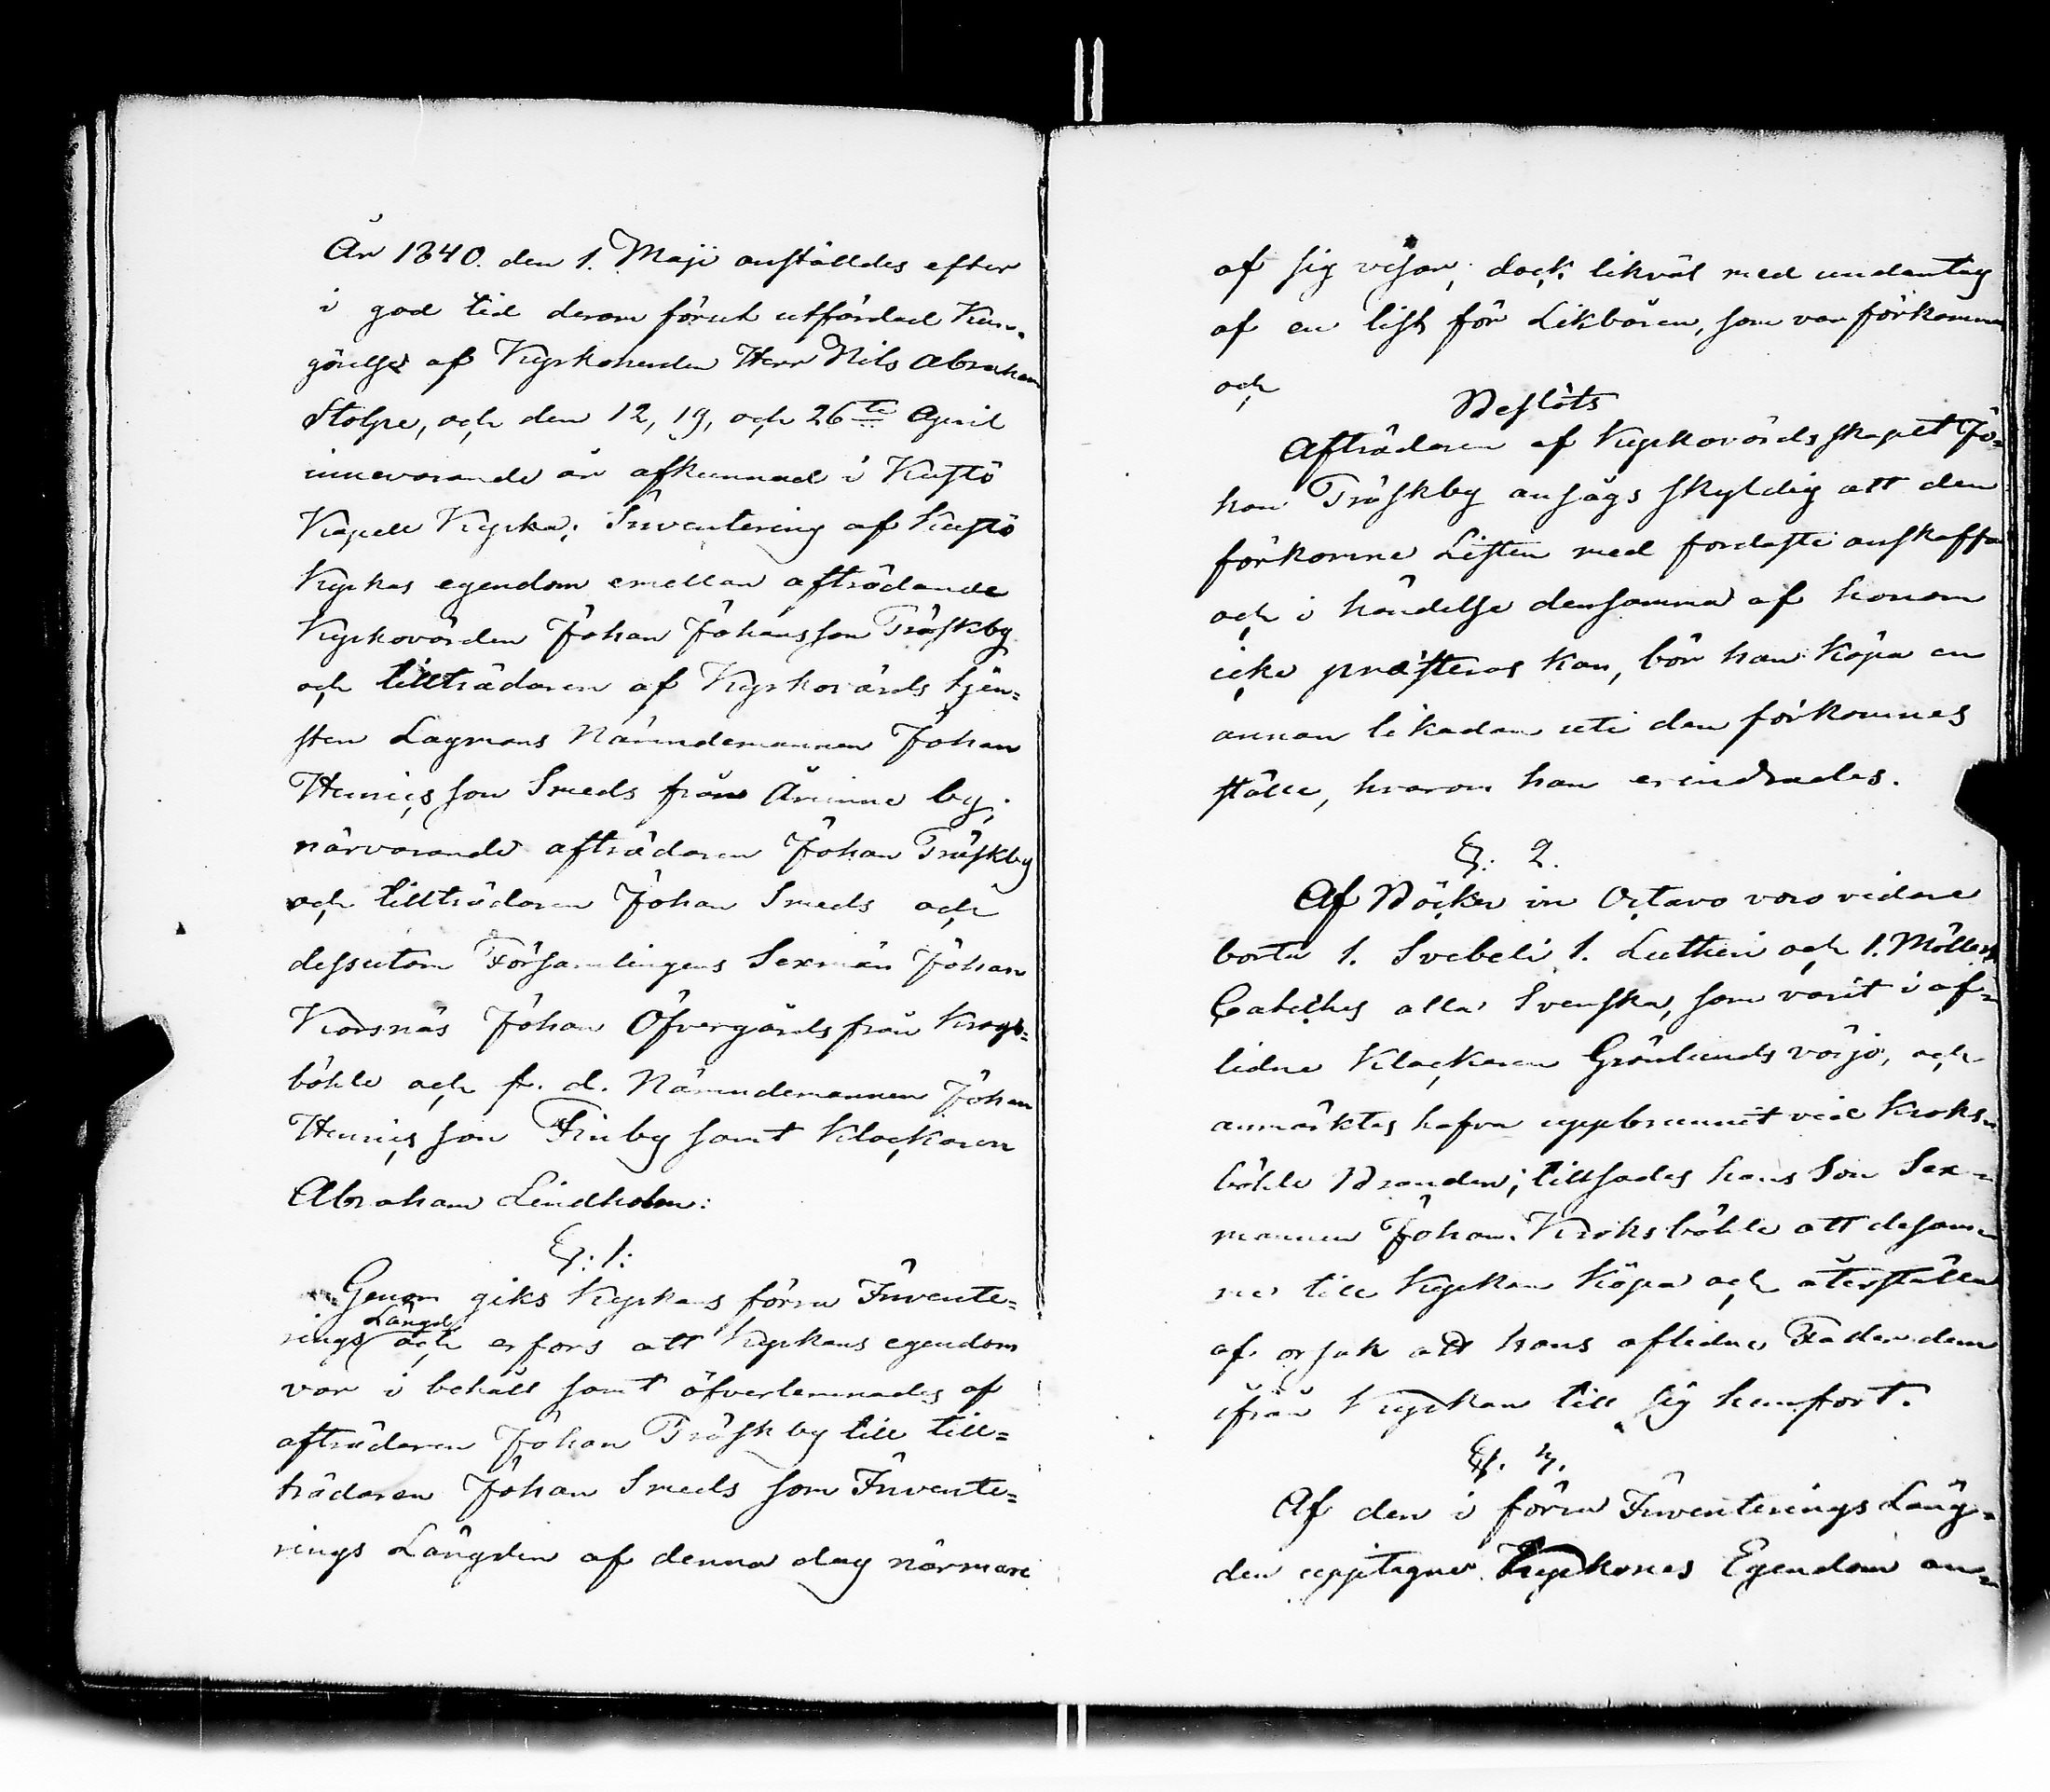 År 1840. den 1. Maji anstäldes efter
i god tid derom förut utfärdad Kun-
görelse af Kyrkoherden Herr Nils Abraham
Stolpe, och den 12, 19, och 26te April
innevarande år afkunnad i Kustö
Kapell Kyrka; Inventering af Kustö
Kyrkas egendom emellan afträdande
Kyrkovärden Johan Johansson Träskby
och tillträdaren af Kyrkovärds tjen=
sten Lagmans Nämndemannen Johan
Henricsson Smeds från by;
närvarande afträdaren Johan Träskby
och tillträdaren Johan Smeds och
dessutom Församlingens Sexmän Johan
Korsnäs Johan Öfvergårds från Krogs=
böhle och f. d. Nämndemannen Johan
Henricsson Finby samt Klockaren
Abraham Lindholm:
§: 1:
Genom giks Kyrkans förra Invente=
rings Längd och erfors att Kyrkans egendom
var i behåll samt öfverlemnades af
afträdaren Johan Träskby till till=
trädaren Johan Smeds som Invente=
rings Längden af denna dag närmare
af sig visar; dock likväl med undantag
af en list för Likbåren, som var förkommen
och
Beslöts
Afträdaren af Kyrkovärdsskapet Jo=
han Träskby ansågs skyldig att den
förkomne Listen med fordaste anskaffa
och i händelse densamma af honom
icke præsteras kan, bör han köpa en
annan likadan uti den förkomnes
ställe, hvarom han erindrades.
§: 2.
Af Böcker in Octavo voro vidare
borta 1. Svebeli 1. Lutheri och 1. Möllers
Cateches alla Svenska, som varit i af=
lidne Klockaren Grönlunds värjo, och
anmärktes hafva uppbrunnit vid Kroks=
böhle Branden; tillsades hans Son Sex=
mannen Johan Kroksböhle att desam=
ma till Kyrkan köpa och återställa
af orsak att hans aflidne Fader dem
ifrån Kyrkan till sig hemfört.
§. 3.
Af den i förra Inventerings Läng=
den upptagne Kyrkones Egendom an=